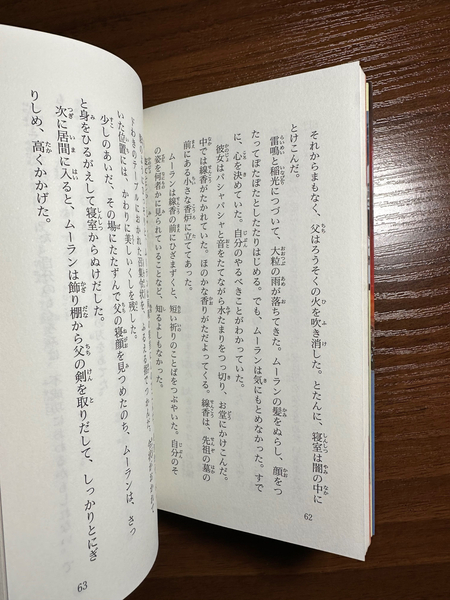 それからまもなく、父はろうそくの火を吹き消した。とたんに、寝室は闇の中に
とけこんだ。
雷鳴と稲光につづいて、大粒の雨が落ちてきた。ムーランの髪をぬらし、顔をつ
たってぽたぽたとしたたりはじめる。でも、ムーランは気にもとめなかった。すで
に、心を決めていた。自分のやるべきことがわかっていた。
彼女はバシャバシャと音をたてながら水たまりをつっ切り、お堂にかけこんだ。
中では線香がたかれていた。ほのかな香りがただよってくる。線香は、先祖の墓の
前にある小さな香炉に立ててあった。
ムーランは線香の前にひざまずくと、短い祈りのことばをつぶやいた。自分のそ
の姿を何者かに見られていることなど、知るよしもなかった。
62
のテーブルにおかれた召集令状を、ふるえる指でつかんだ。
いた位置には、かわりに美しいくしを残した。
少しのあいだ、その場にたたずんで父の寝顔を見つめたのち、ムーランは、さっ
と身をひるがえして寝室からぬけだした。
次に居間に入ると、ムーランは飾り棚から父の剣を取りだして、しっかりとにぎ
りしめ、高くかかげた。
63